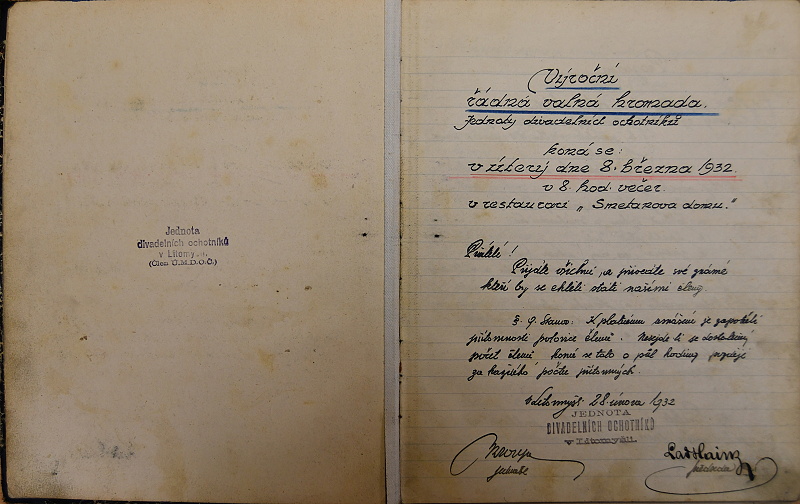 Jednota
divadelních ochotníků
v Litomyšli.
(Člen Ú.M.D.O.Č.)
Výroční
řádná valná hromada.
Jednoty divadelních ochotníků
koná se:
v úterý dne 8. března 1932.
v 8. hod. večer.
v restauraci „Smetanova domu."
Přátelé!
Přijďte všichni, a přiveďte své známé
kteří by se chtěli státi našimi členy.
§. 9. Stanov: K platnému usnášení je zapotřebí
přítomnosti polovice členů. Nesejde-li se dostatečný
počet členů koná se tato o půl hodiny později
za každého počtu přítomných.
V Litomyšli 28. února 1932
JEDNOTA
DIVADELNÍCH OCHOTNÍKŮ
v Litomyšli.
jednatel